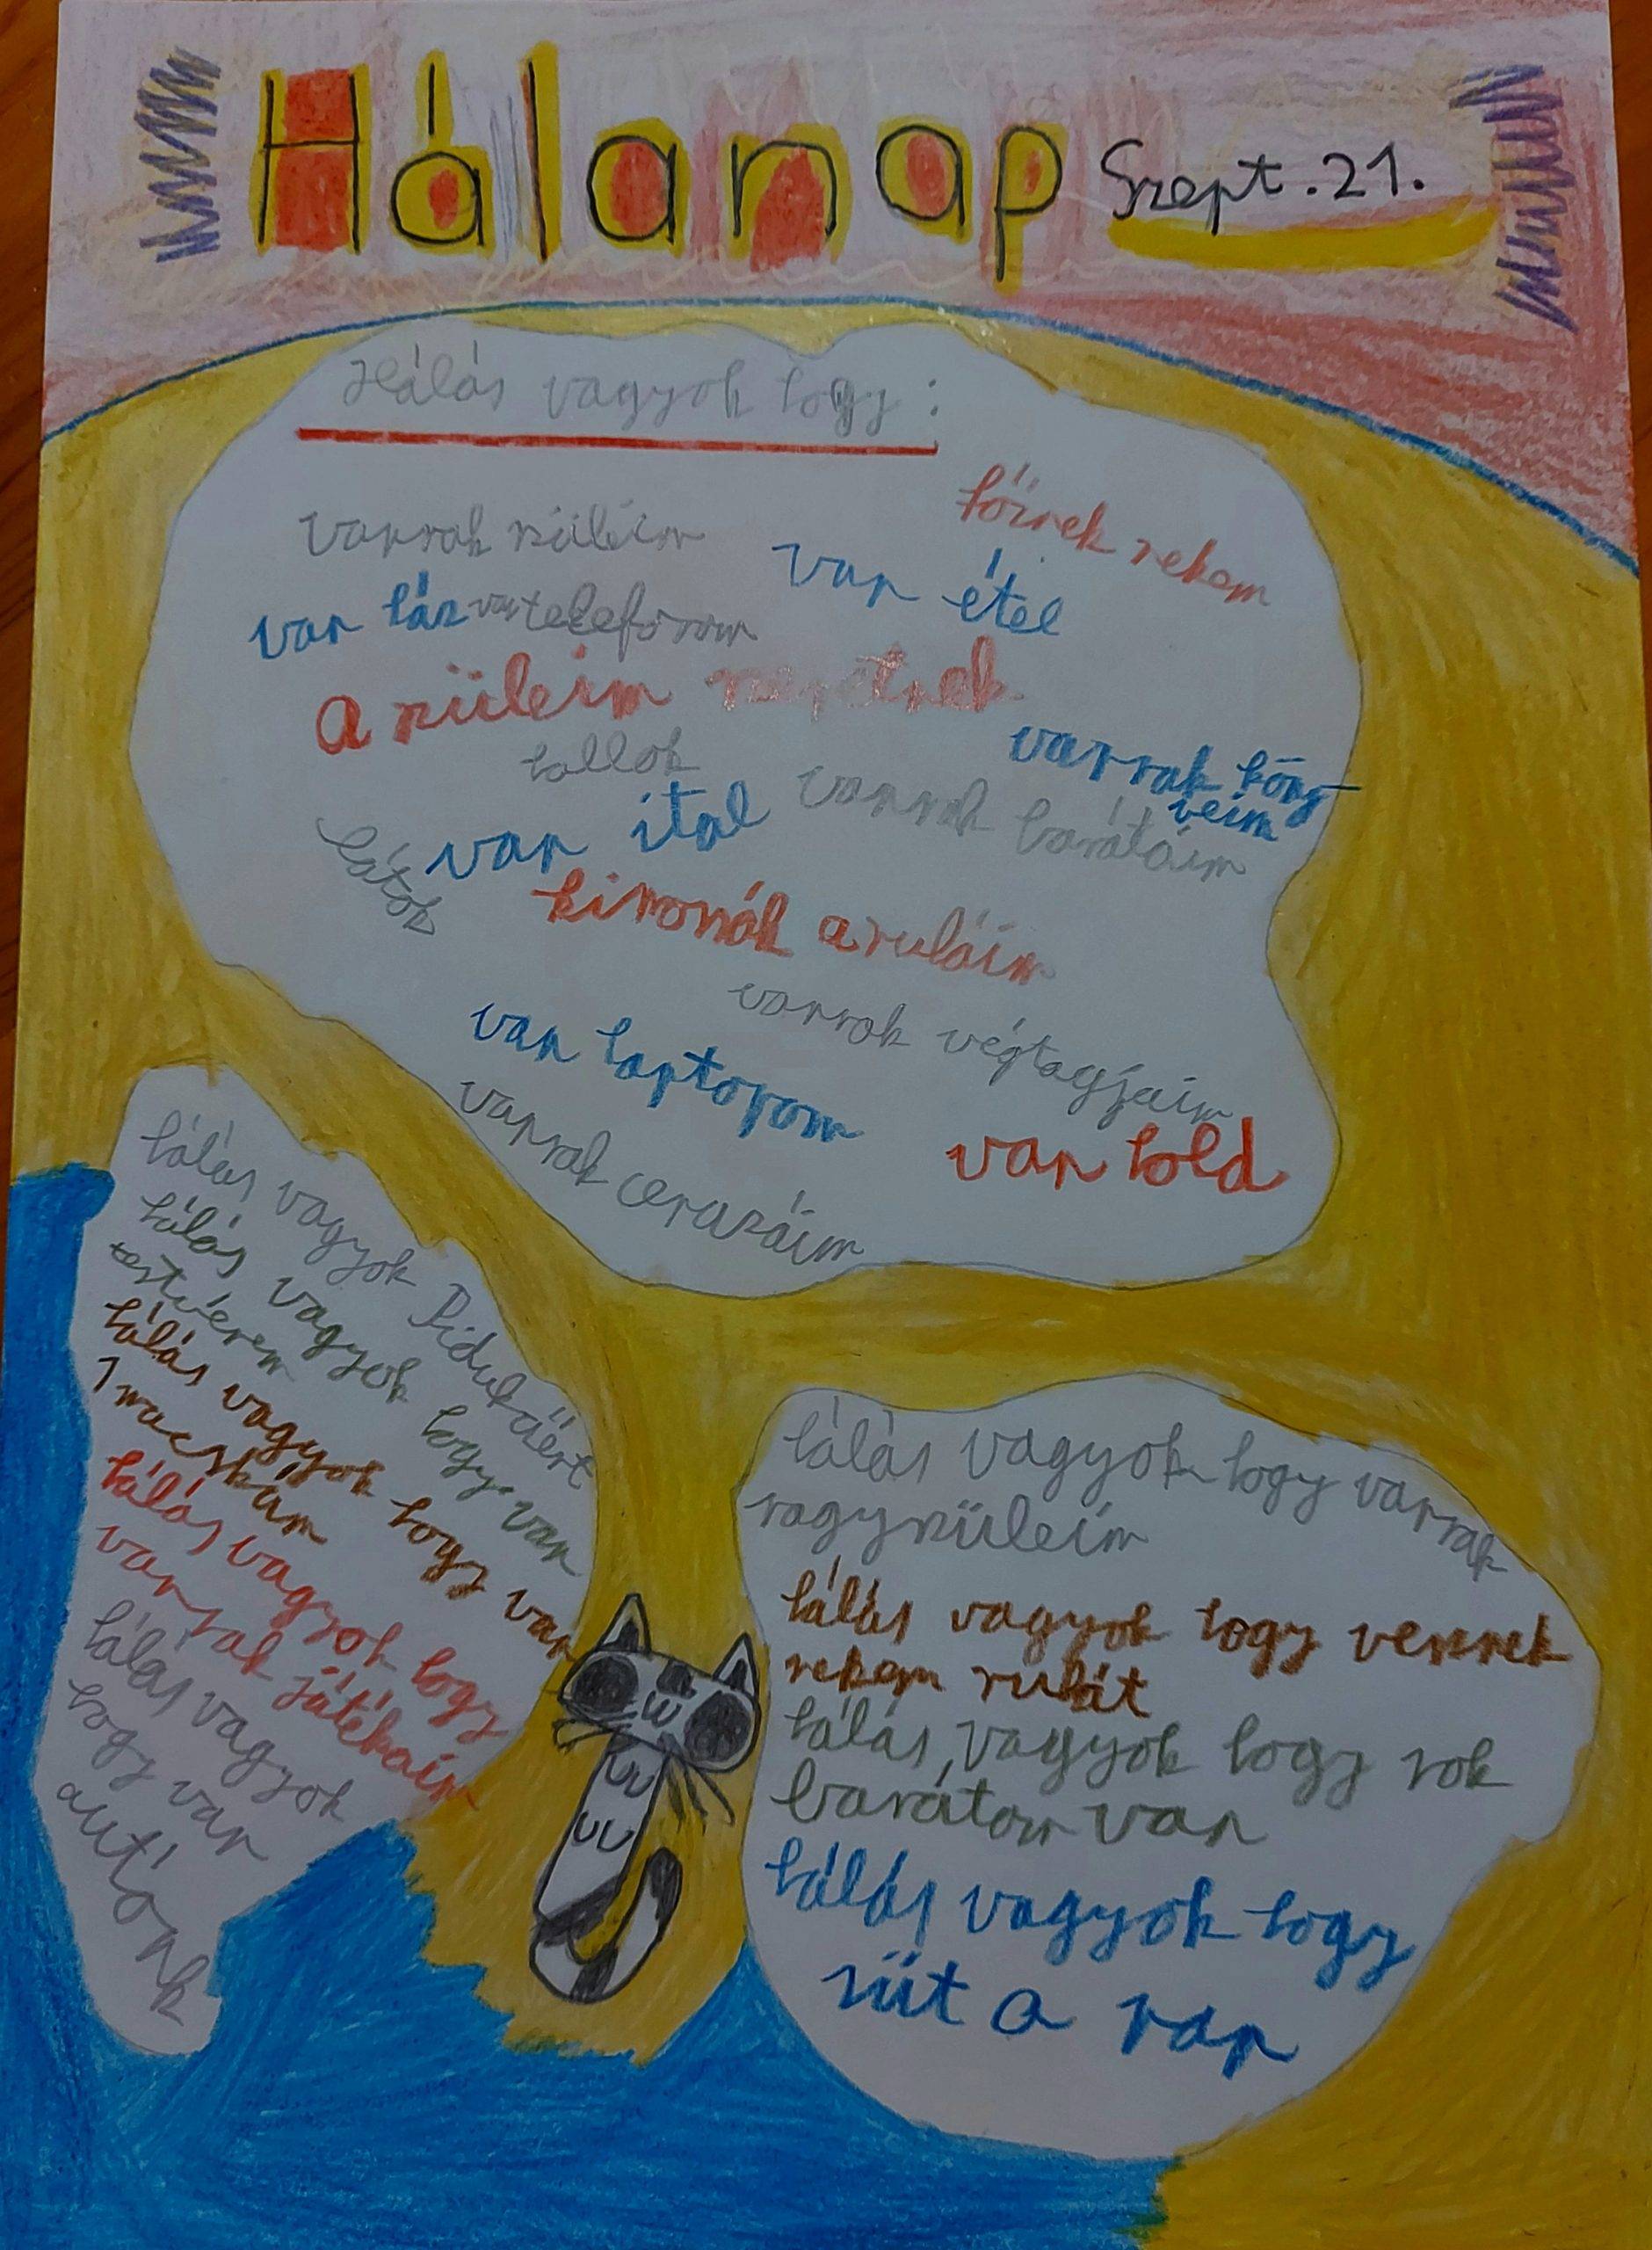 Hálanap Szept. 21.
Hálás vagyok hogy:
főznek nekem
Vannak szüleim
van étel
van ház
van telefonom
A szüleim szeretnek
hallok
vannak köny-
veim
van ital
vannak barátáim
látok
kimossák a ruháim
vannak végtagjaim
van laptopom
van hold
vannak ceruzáim
hálás vagyok
hálás vagyok hogy van
testvérem
hálás vagyok hogy van
1 macskám
hálás vagyok hogy
vannak játékaim
hálás vagyok
hogy van
autónk
hálás vagyok hogy vannak
nagyszüleim
hálás vagyok hogy vesznek
nekem ruhát
hálás vagyok hogy sok
barátom van
hálás vagyok hogy
süt a nap